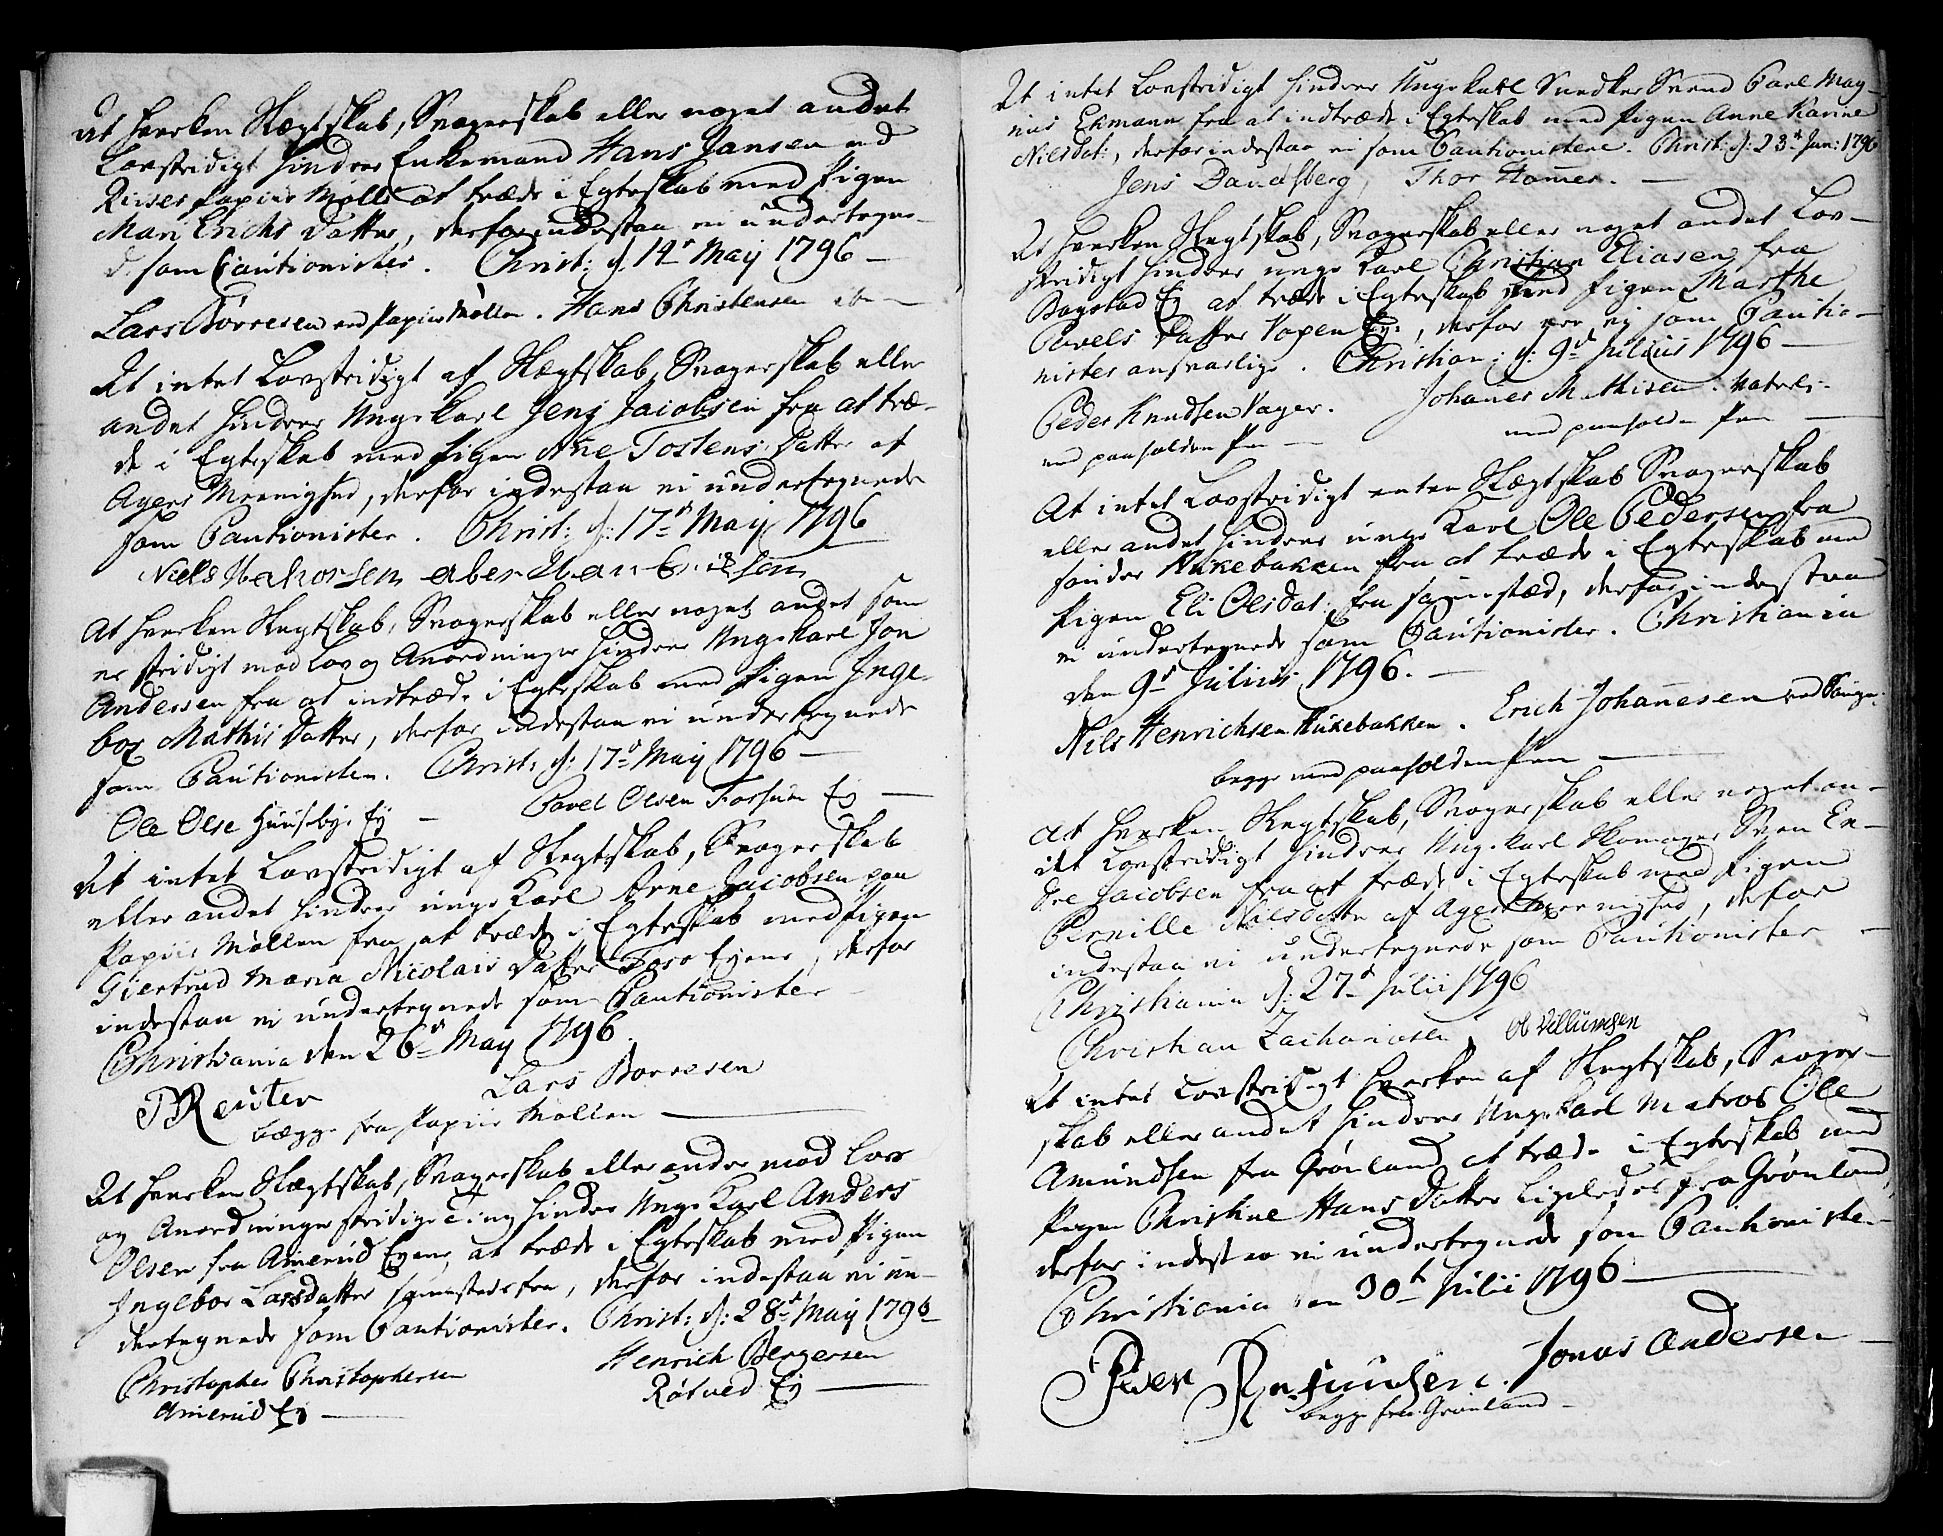 At hverken Slægtskab, Svogerskab eller noget andet
Lovstridigt hindrer Enkemand Hans Jansen ved
Papiir Mølle at træde i Egteskab med Pigen
Mari Erichs Datter, derfor indestaa vi undertegne-
de som Cautionister. Christ: d: 14de May 1796 —
Lars Børresen ved Papiir Møllen. Hans Christensen
At intet Lovstridigt af Slægtskab, Svogerskab eller
andet hindrer Ungekarl Jens Jacobsen fra at træ-
de i Egteskab med Pigen Ane Tostens Datter af
Agers Meenighed, derfor indestaa vi undertegnede
som Cautionister. Christ: d: 17de May 1796
Niels
At hverken Slegtskab, Svogerskab eller noget andet som
er stridigt mod Lov og Anordninger hindrer Ungekarl Jon
Andersen fra at indtræde i Egteskab med Pigen Inge-
bor Mathis Datter, derfor indestaa vi undertegnede
som Cautionister. Christ: d: 17de May 1796 —
Ole Olse Huusbye Ej — Povel Olsen Fossum Ej —
At intet Lovstridigt af Slegtskab, Svogerskab
eller andet hindrer unge Karl Arne Jacobsen paa
Papiir Møllen fra at træde i Egteskab med Pigen
Giertrud Maria Nicolais Datter Foss Eyene, derfor
indestaa vi undertegnede som Cautionister
Christiania den 26de May 1796.
Reuter Lars Borresen
begge fra Papiir Møllen —
At hverken Slægtskab, Svogerskab eller andre mod Lov
og Anordninger stridige Ting hindrer Unge Karl Anders
Olsen fra Amerud Eyene at træde i Egteskab med Pigen
Ingebor Larsdatter sammestedsfra, derfor indestaa vi un-
dertegnede som Cautionister. Christ: d: 28de May 1796
Christopher Christophersen Henrich Bergersen
Amerud Ej — Røtved Ej —
At intet Lovstridigt hindrer Ungekarl Snedker Svend Carl Mag-
nus Ekmann fra at indtræde i Egteskab med Pigen Anne Karine
Nilsdat:, derfor indestaa vi som Cautionistere. Christ: d: 23de Jun: 1796
Jens Thor Hammer. —
At hverken Slegtskab, Svogerskab eller noget andet Lov-
stridigt hindrer unge Karl Christian Eliasen fra
Bogstad Ej at træde i Egteskab med Pigen Marthe
Povels Datter Vopen Eye, derfor ere vi som Cautio-
nister ansvarlige. Christian: d: 9de Julius 1796 —
Peder Knudsen Vager. Johanes Mathisen
med paaholden Pen — med paaholden Pen —
At intet Lovstridigt enten Slægtskab Svogerskab
eller andet hindrer unge Karl Ole Pedersen fra
Hukebakken fra at træde i Egteskab med
Pigen Eli Olsdat: fra sammestæd, derfor indestaa
vi undertegnede som Cautionister. Christiania
den 9de Julius 1796. —
Nils Henrichsen Hukebakken. Erich Johanesen ved
begge med paaholden Pen —
At hverken Slegtskab, Svogerskab eller noget an-
det Lovstridigt hindrer Ungekarl Skomager Sven En-
dre Jacobsen fra at træde i Egteskab med Pigen
Pernille Nilsdatter af Agers Meenighed, derfor
indestaa vi undertegnede som Cautionister —
Christiania d: 27de Julii 1796
Christian Zachariasen Ol Villumsen
At intet Lovstridigt hverken af Slegtskab, Svoger-
skab eller andet hindrer Ungekarl Matros Ole
Amundsen fra Grønland at træde i Egteskab med
Pigen Christine Hans Datter ligeledes fra Grønland,
derfor indestaa vi undertegnede som Cautionister
Christiania den 30te Julii 1796 —
Peder Jonas Andersen —
begge fra Grønland —